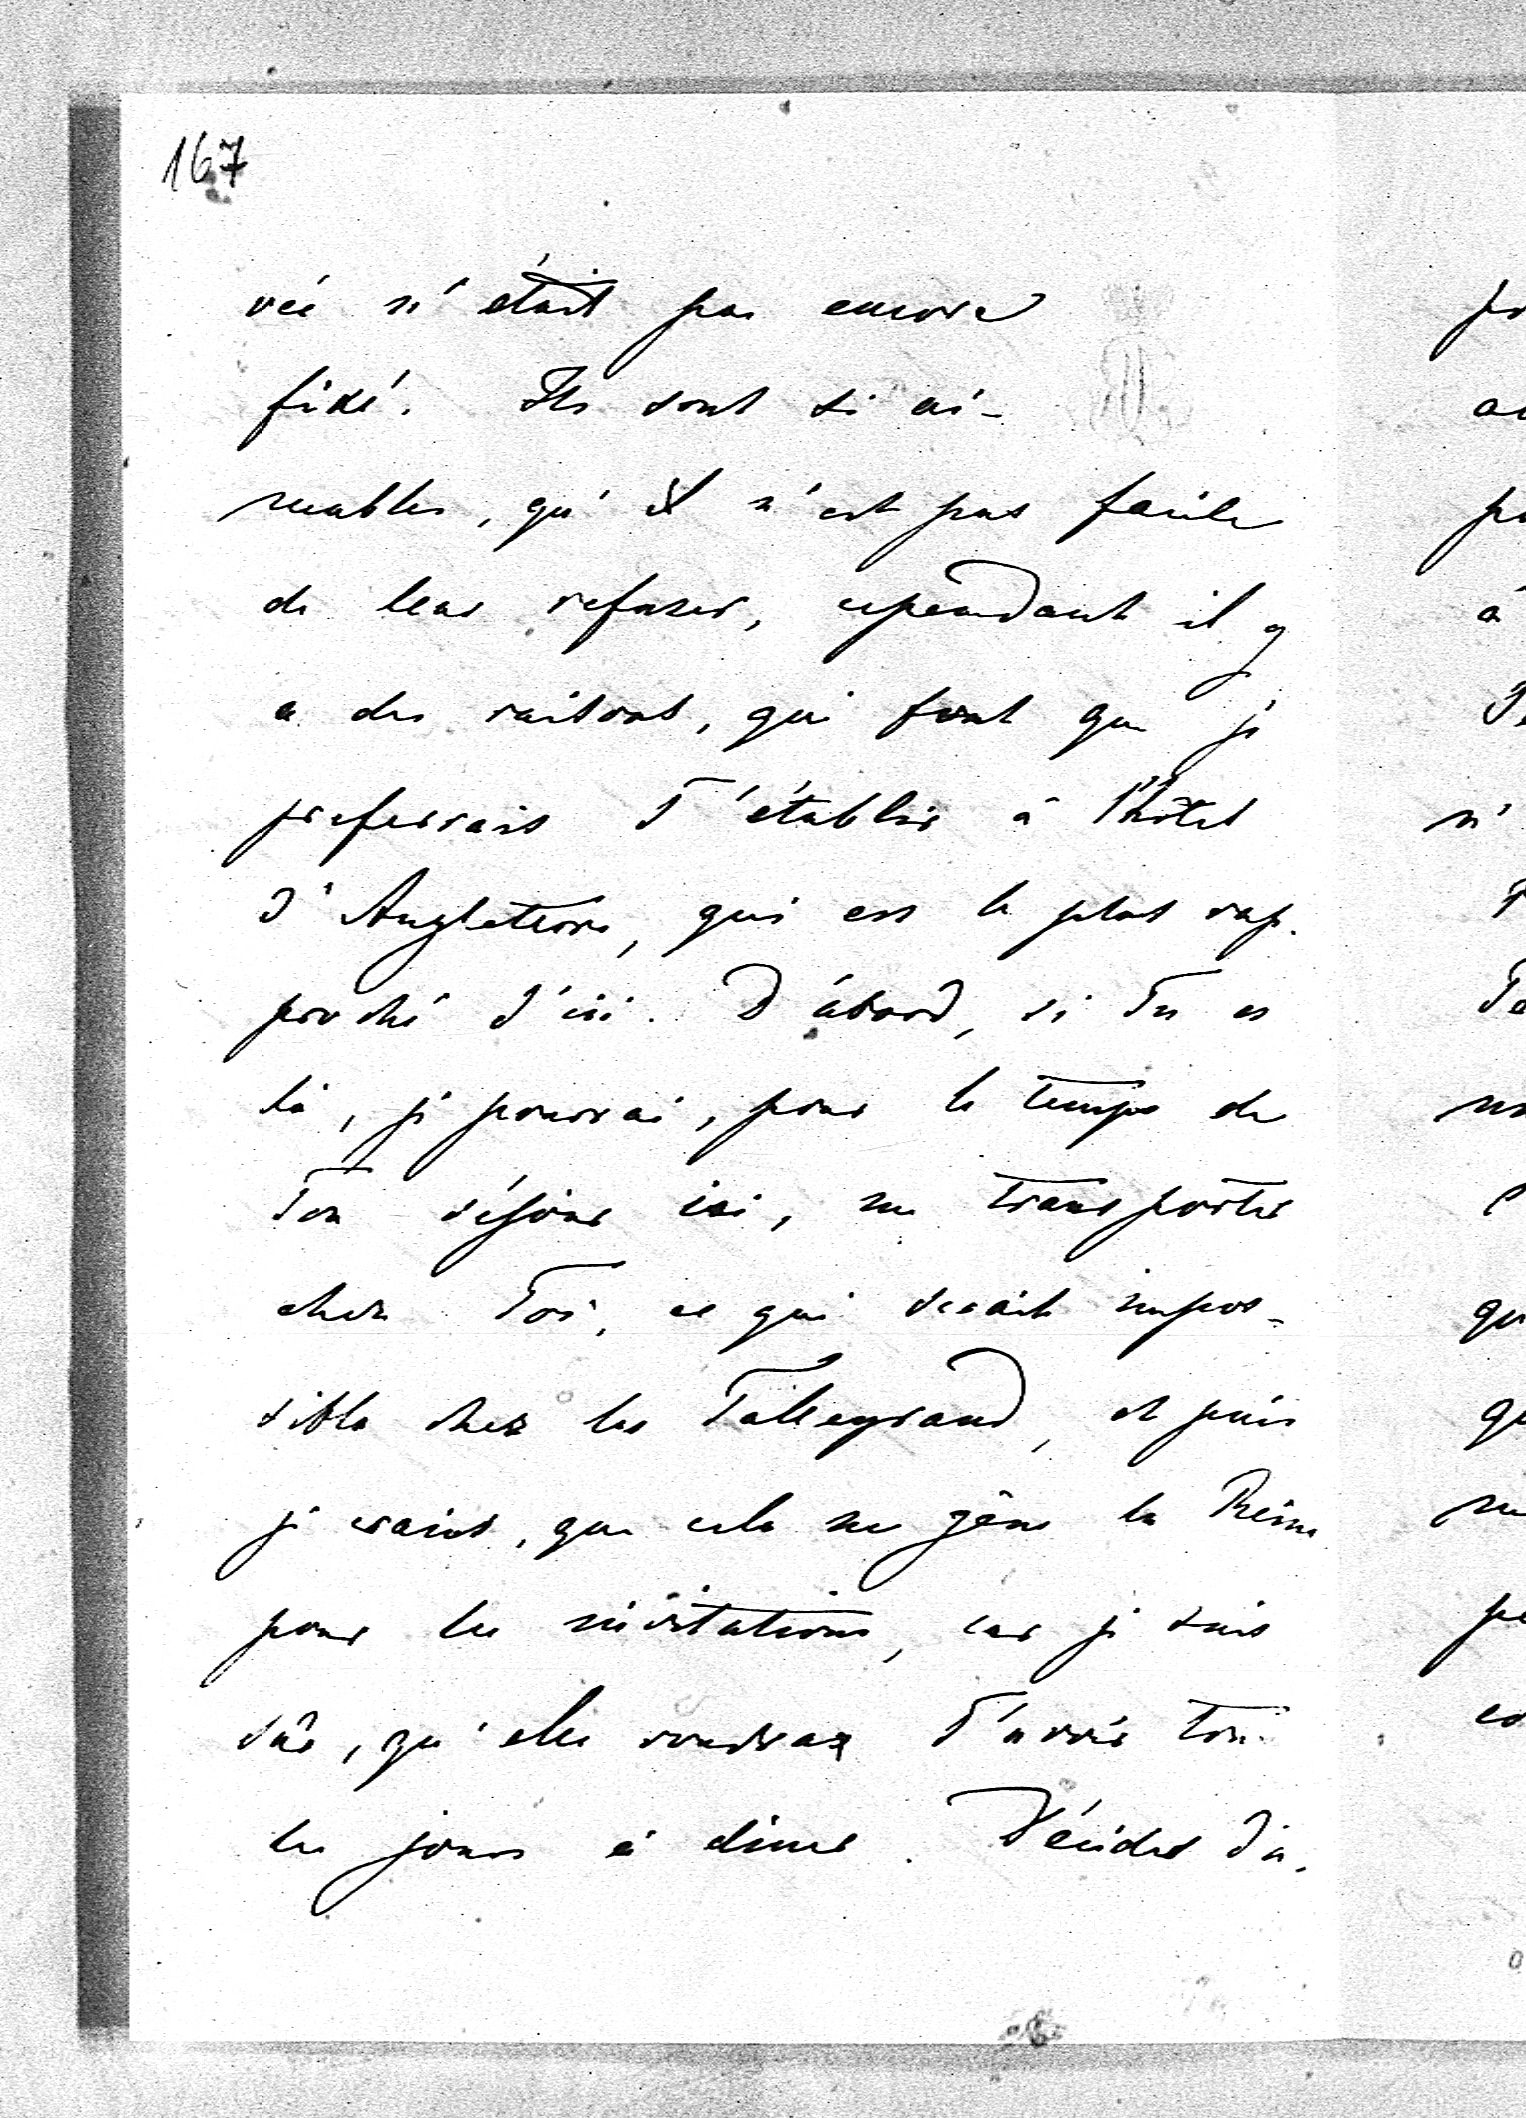 167
vée n'était pas encore
fixé. Ils sont si ai-
mables, qu'il n'est pas facile
de leur refuser, cependant il y
a des raisons, qui font que je
preferrais T'établir à l'hôtel
d'Angleterre, qui est le plus rap-
proché d'ici. D'abord, si Tu es
là, je pourrai, pour le temps de
Ton séjour ici, me transporter
chez Toi, ce qui serait impos-
sible chez les Talleyrand, et puis
je crains, que cela ne gêne la Reine
pour les invitations, car je suis
sûr, qu'elle voudra T'avoir tous
les jours à diner. Décides d'a-